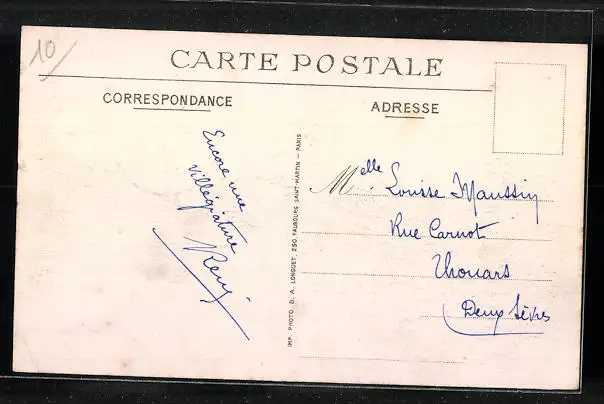 10
CARTE POSTALE
CORRESPONDANCE
ADRESSE
Encore une
villégiature
Remy
IMP. PHOTO. D. A. LONGUET, 250, FAUBOURG SAINT-MARTIN — PARIS
Melle Louise
Rue Carnot
Thouars
Deux Sèvres